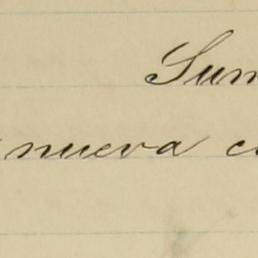 Sum
nueva c